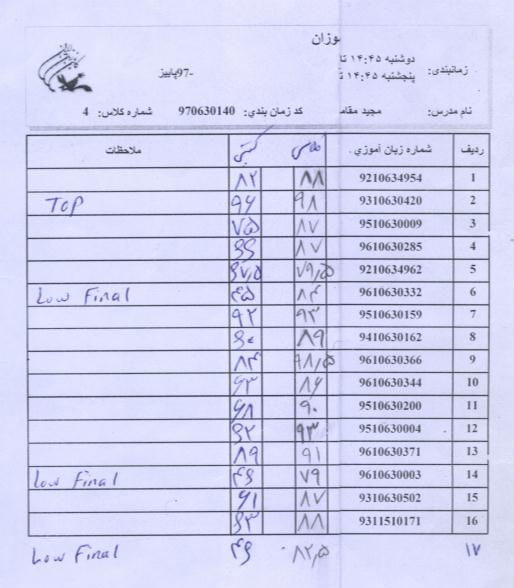 وزان
دوشنبه ۱۴:۴۵ تا
زمانبندی: پنجشنبه ۱۴:۴۵
97پاییز-
نام مدرس: مجید کد زمان بندي: 970630140 شماره کلاس: 4
ردیف شماره زبان آموزي . کلاسی کتبی ملاحظات
1 9210634954 ۸۸ ۸۲
2 9310630420 ۹۸ ۹۶ Top
3 9510630009 ۸۷ ۷۵
4 9610630285 ۸۷
5 9210634962 ۷۹٫۵
6 9610630332 ۸۴ ۴۵ Low Final
7 9510630159 ۹۳ ۹۲
8 9410630162 ۸۹
9 9610630366 ۹۸٫۵ ۸۴
10 9610630344 ۸۶ ۶۳
11 9510630200 ۹۰ ۶۸
12 9510630004 ۹۳
13 9610630371 ۹۱ ۸۹
14 9610630003 ۷۹ ۴۶ Low Final
15 9310630502 ۸۷ ۹۱
16 9311510171 ۸۸
۱۷ ۸۲٫۵ ۴۶ Low Final